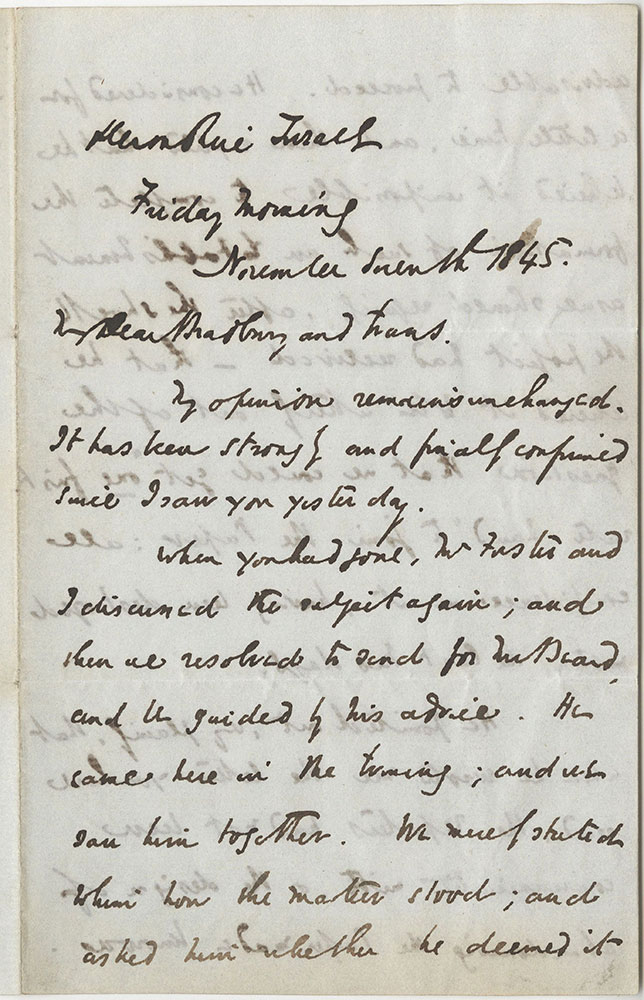 Devonshire Terrace
Friday Morning
November Seventh 1845.
My Dear Bradbury and Evans.
My opinion remains unchanged.
It has been strongly and finally confirmed
since I saw you yesterday.
When you had gone, Mr Forster and
I discussed the subject again; and
then we resolved to send for Mr Beard,
and be guided by his advice. He
came here in the Evening; and we
saw him together. We merely stated
to him how the matter stood; and
asked him whether he deemed it